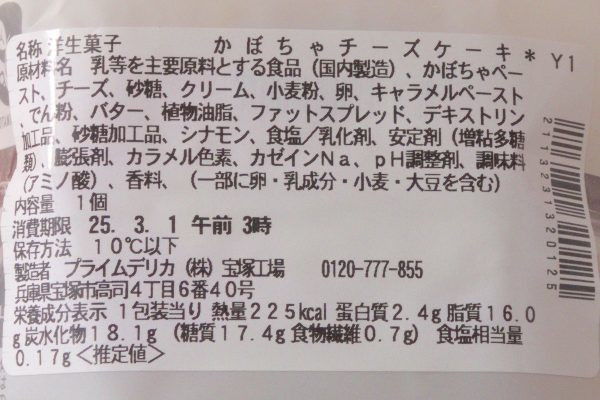 名称 洋生菓子 かぼちゃチーズケーキ* Y1
原材料名 乳等を主要原料とする食品(国内製造)、かぼちゃペー
スト、チーズ、砂糖、クリーム、小麦粉、卵、キャラメルペースト
でん粉、バター、植物油脂、ファットスプレッド、デキストリン
加工品、砂糖加工品、シナモン、食塩/乳化剤、安定剤(増粘多糖
類)、膨張剤、カラメル色素、カゼインNa、pH調整剤、調味料
(アミノ酸)、香料、(一部に卵・乳成分・小麦・大豆を含む)
内容量 1個
消費期限 25. 3. 1 午前 3時
保存方法 10℃以下
製造者 プライムデリカ(株)宝塚工場 0120-777-855
兵庫県宝塚市高司4丁目6番40号
栄養成分表示 1包装当り 熱量225kcal 蛋白質2.4g 脂質16.0
g 炭水化物18.1g (糖質17.4g 食物繊維0.7g) 食塩相当量
0.17g<推定値>
2113231320125